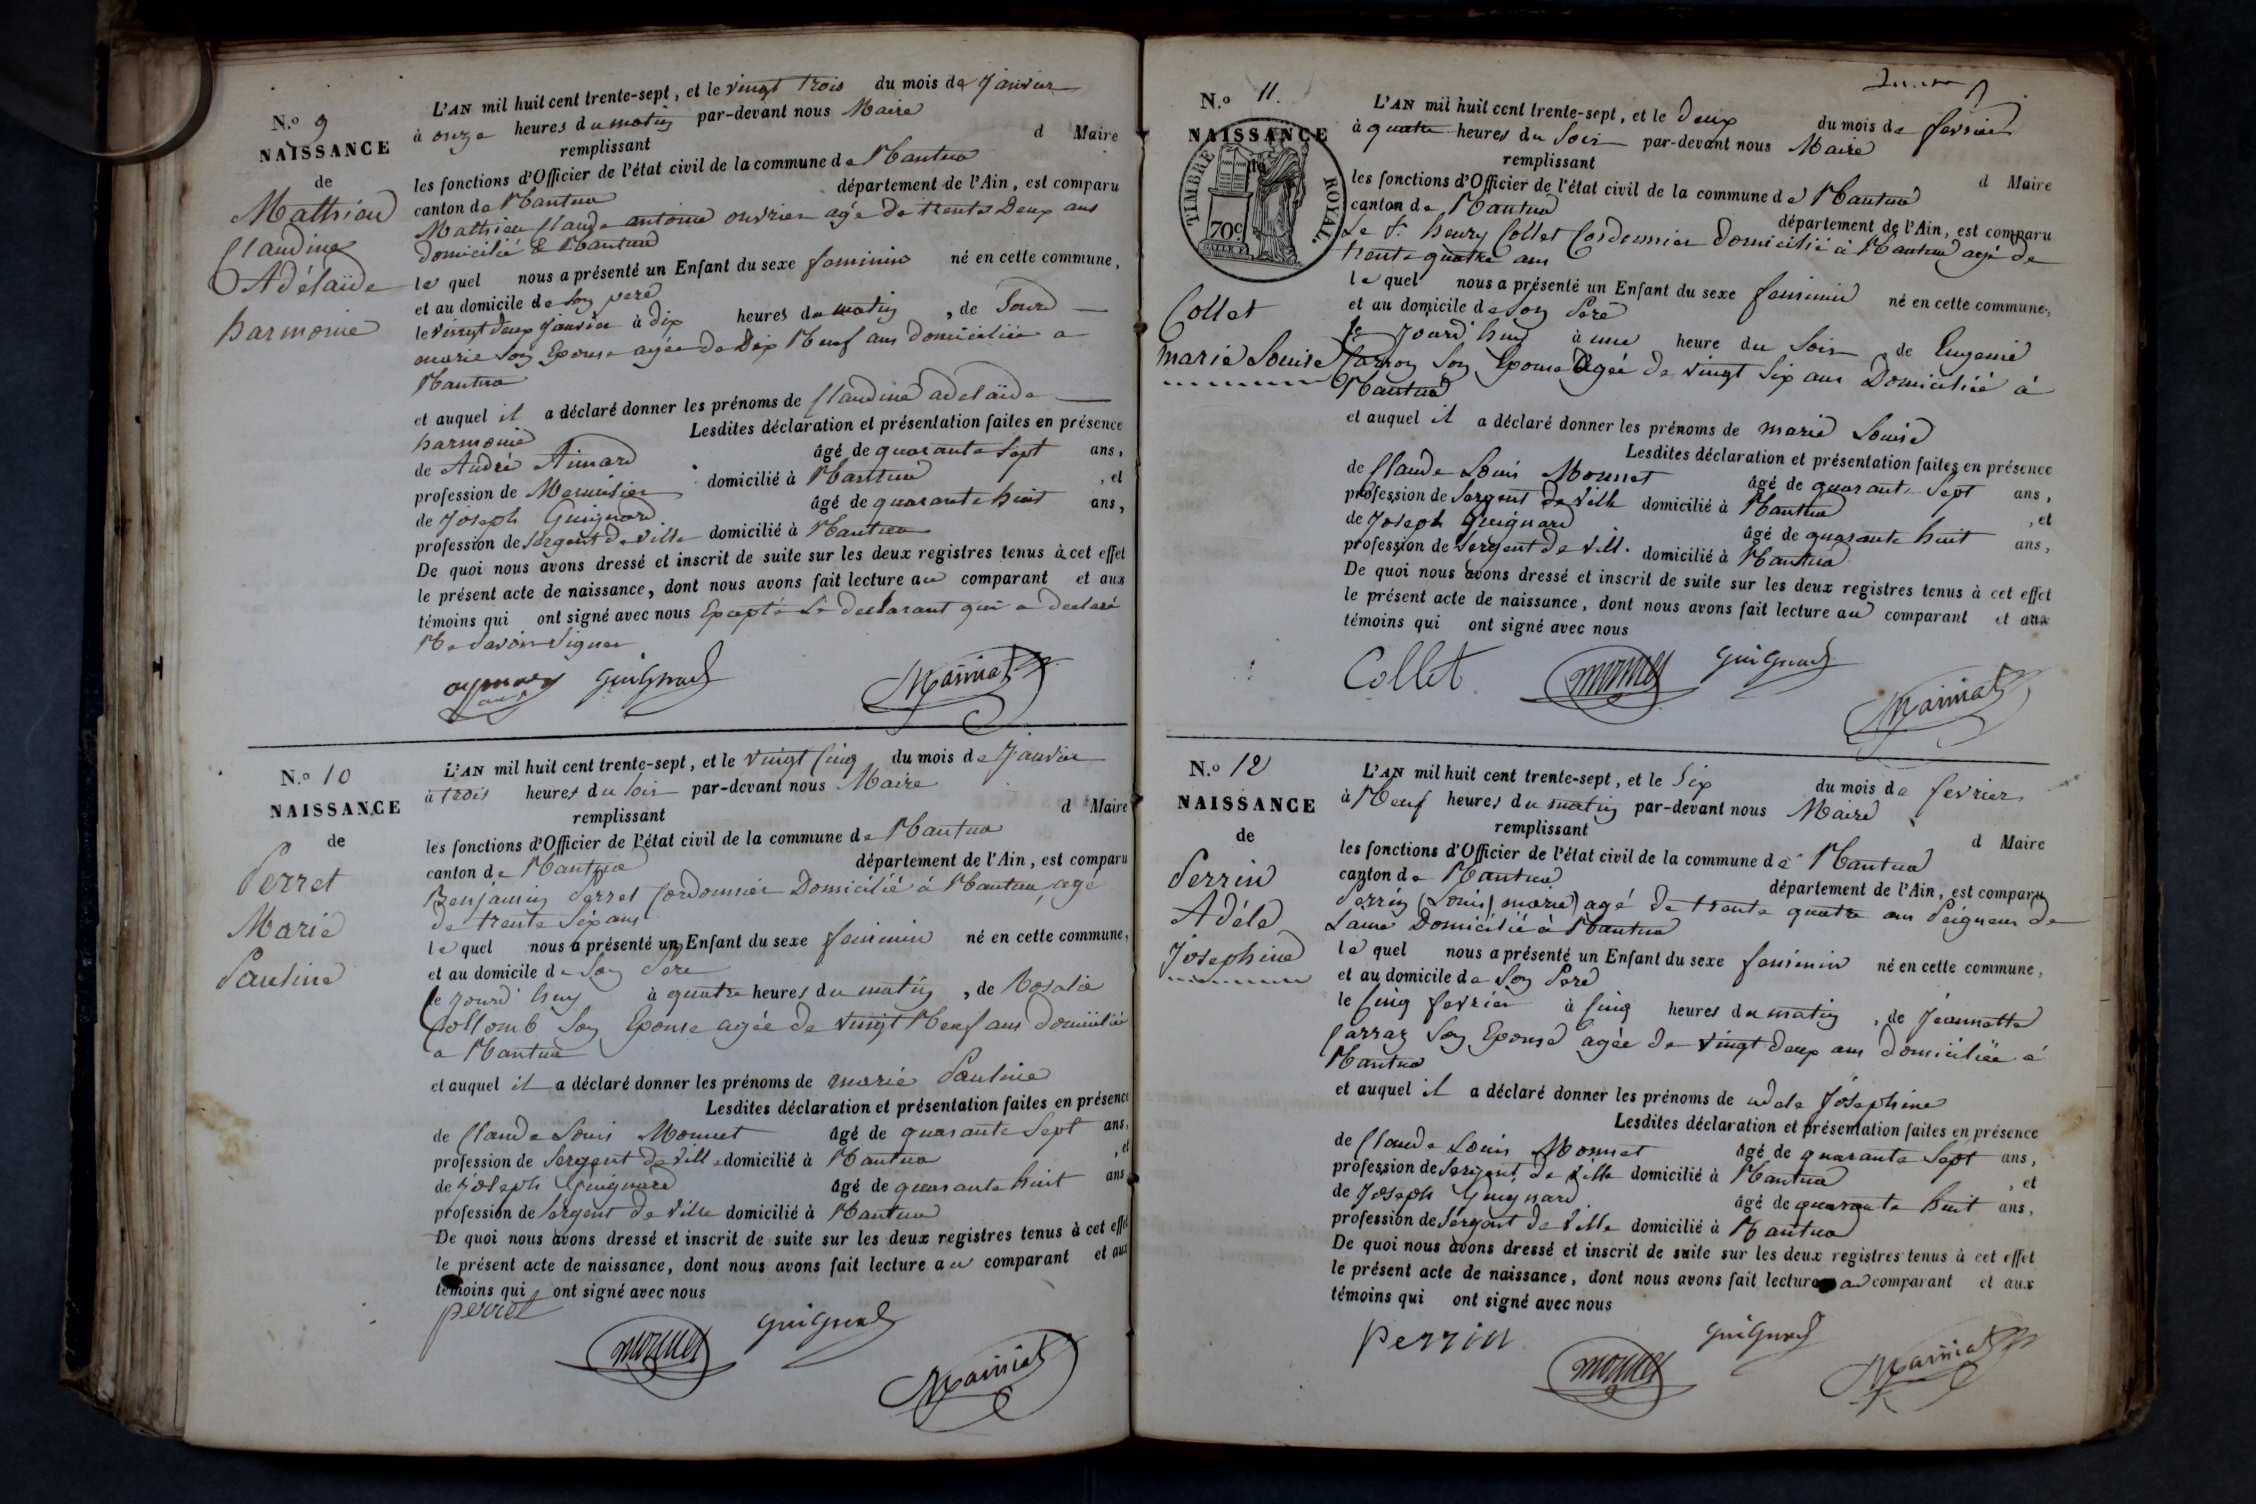 N.o 9
NAISSANCE
de
Mathieu
Claudine
Adélaïde
harmonie
L'AN mil huit cent trente-sept, et le vingt trois du mois de Janvier
à onze heures du matin par-devant nous Maire
d Maire
remplissant
les fonctions d'Officier de l'état civil de la commune de Nantua
canton de Nantua département de l'Ain, est comparu
Mathieu Claude antoine ouvrier agé de trente Deux ans
domicilié à Nantua
le quel nous a présenté un Enfant du sexe feminin né en cette commune,
et au domicile de son pere
le vingt deux Janvier à dix heures du matin, de
marie Son Epouse agée de Dix Neuf ans domiciliée a
Nantua
et auquel il a déclaré donner les prénoms de Claudine adelaïde
harmonie Lesdites déclaration et présentation faites en présence
de André Aimard âgé de quarante Sept ans,
profession de Menuisier domicilié à Nantua, et
de Joseph Guignard âgé de quarante huit ans,
profession de Sergent de Ville domicilié à Nantua
De quoi nous avons dressé et inscrit de suite sur les deux registres tenus à cet effet
le présent acte de naissance, dont nous avons fait lecture au comparant et aux
témoins qui ont signé avec nous Excepté Le declarant qui a declaré
Ne Savoir Signer
Guignard
N.o 10
NAISSANCE
de
Perret
Marie
Pauline
L'AN mil huit cent trente-sept, et le vingt Cinq du mois de Janvier
à trois heures du soir par-devant nous Maire
d Maire
remplissant
les fonctions d'Officier de l'état civil de la commune de Nantua
canton de Nantua département de l'Ain, est comparu
Benjamin Perret Cordonnier Domicilié à Nantua, agé
de trente Six ans
le quel nous a présenté un Enfant du sexe feminin né en cette commune,
et au domicile de Son Pere
le Jourd'huy à quatre heures du matin, de Rosalie
Collomb Son Epouse agée de vingt Neuf ans domiciliée
a Nantua
et auquel il a déclaré donner les prénoms de marie Pauline
Lesdites déclaration et présentation faites en présence
de Claude Louis Monnet âgé de quarante Sept ans,
profession de Sergent de Ville domicilié à Nantua, et
de Joseph Guignard âgé de quarante huit ans
profession de Sergent de Ville domicilié à Nantua
De quoi nous avons dressé et inscrit de suite sur les deux registres tenus à cet effet
le présent acte de naissance, dont nous avons fait lecture au comparant et aux
témoins qui ont signé avec nous
perret
monnet Guignard
N.o 11.
NAISSANCE
TIMBRE ROYAL.
70c
Collet
marie Louise
L'AN mil huit cent trente-sept, et le Deux du mois de fevrier
à quatre heures du Soir par-devant nous Maire
d Maire
remplissant
les fonctions d'Officier de l'état civil de la commune de Nantua
canton de Nantua département de l'Ain, est comparu
Le Sr. henry Collet Cordonnier Domicilié à Nantua agé de
trente quatre ans
le quel nous a présenté un Enfant du sexe feminin né en cette commune,
et au domicile de Son Pere
le Jourd'huy à une heure du Soir, de Eugenie
Son Epouse agée de vingt Six ans Domiciliée à
Nantua
et auquel il a déclaré donner les prénoms de marie Louise
Lesdites déclaration et présentation faites en présence
de Claude Louis Monnet âgé de quarante Sept ans,
profession de Sergent de Ville domicilié à Nantua, et
de Joseph Guignard âgé de quarante huit ans,
profession de Sergent de Vill. domicilié à Nantua
De quoi nous avons dressé et inscrit de suite sur les deux registres tenus à cet effet
le présent acte de naissance, dont nous avons fait lecture au comparant et aux
témoins qui ont signé avec nous
Collet monnet Guignard
N.o 12
NAISSANCE
de
Perrin
Adéle
Josephine
L'AN mil huit cent trente-sept, et le Six du mois de fevrier
à Neuf heures du matin par-devant nous Maire
d Maire
remplissant
les fonctions d'Officier de l'état civil de la commune de Nantua
canton de Nantua département de l'Ain, est comparu
Perrin (Louis marie) agé de trente quatre ans Peigneur de
Laine Domicilié à Nantua
le quel nous a présenté un Enfant du sexe feminin né en cette commune,
et au domicile de Son Pere
le Cinq fevrier à Cinq heures du matin, de Jeannette
Carraz Son Epouse agée de vingt deux ans domiciliée à
Nantua
et auquel il a déclaré donner les prénoms de adele Josephine
Lesdites déclaration et présentation faites en présence
de Claude Louis Monnet âgé de quarante Sept ans,
profession de Sergent de Ville domicilié à Nantua, et
de Joseph Guignard âgé de quarante huit ans,
profession de Sergent de Ville domicilié à Nantua
De quoi nous avons dressé et inscrit de suite sur les deux registres tenus à cet effet
le présent acte de naissance, dont nous avons fait lecture au comparant et aux
témoins qui ont signé avec nous
perrin monnet Guignard